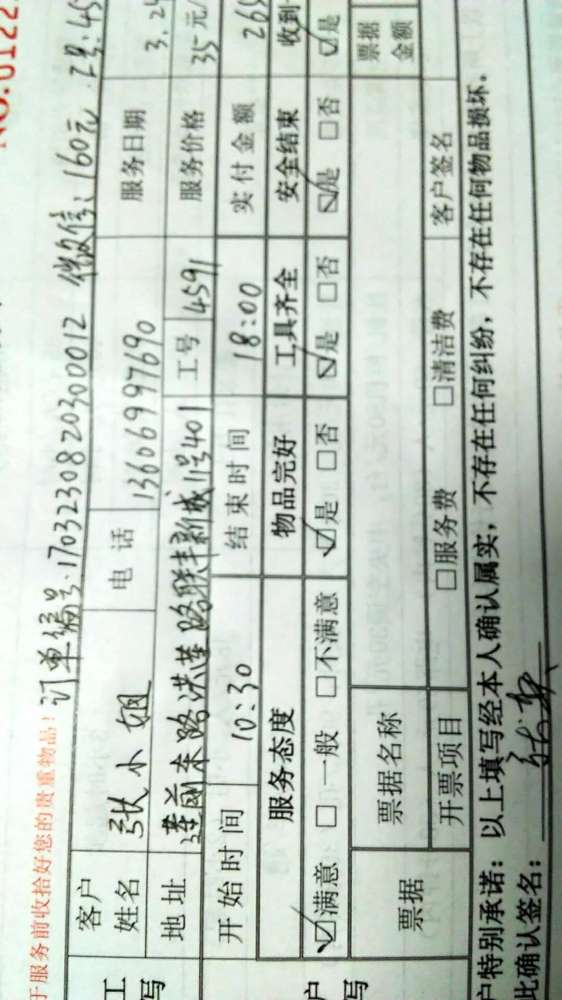 NO.0122
于服务前收拾好您的贵重物品!
订单编号:17032308203000012 微信:160元
客户姓名 张小姐 电话 13606997690 服务日期 3.24
地址 莲前东路洪莲路联丰新城11号401 工号 4591 服务价格 35元/
开始时间 10:30 结束时间 18:00 实付金额 265
服务态度 物品完好 工具齐全 安全结束 收到
☑满意 □一般 □不满意 ☑是 □否 ☑是 □否 ☑是 □否 ☑是
票据 票据名称 票据金额
开票项目 □服务费 □清洁费 客户签名
户特别承诺:以上填写经本人确认属实,不存在任何纠纷,不存在任何物品损坏。
此确认签名: